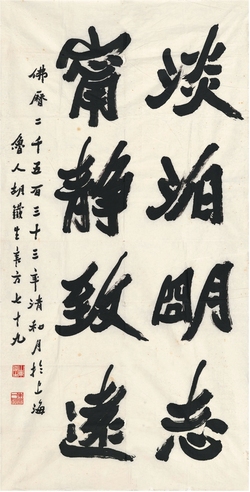 淡泊明志
甯静致遠
佛曆二千五百三十三年清和月於上海
魯人胡鐵生年方七十九